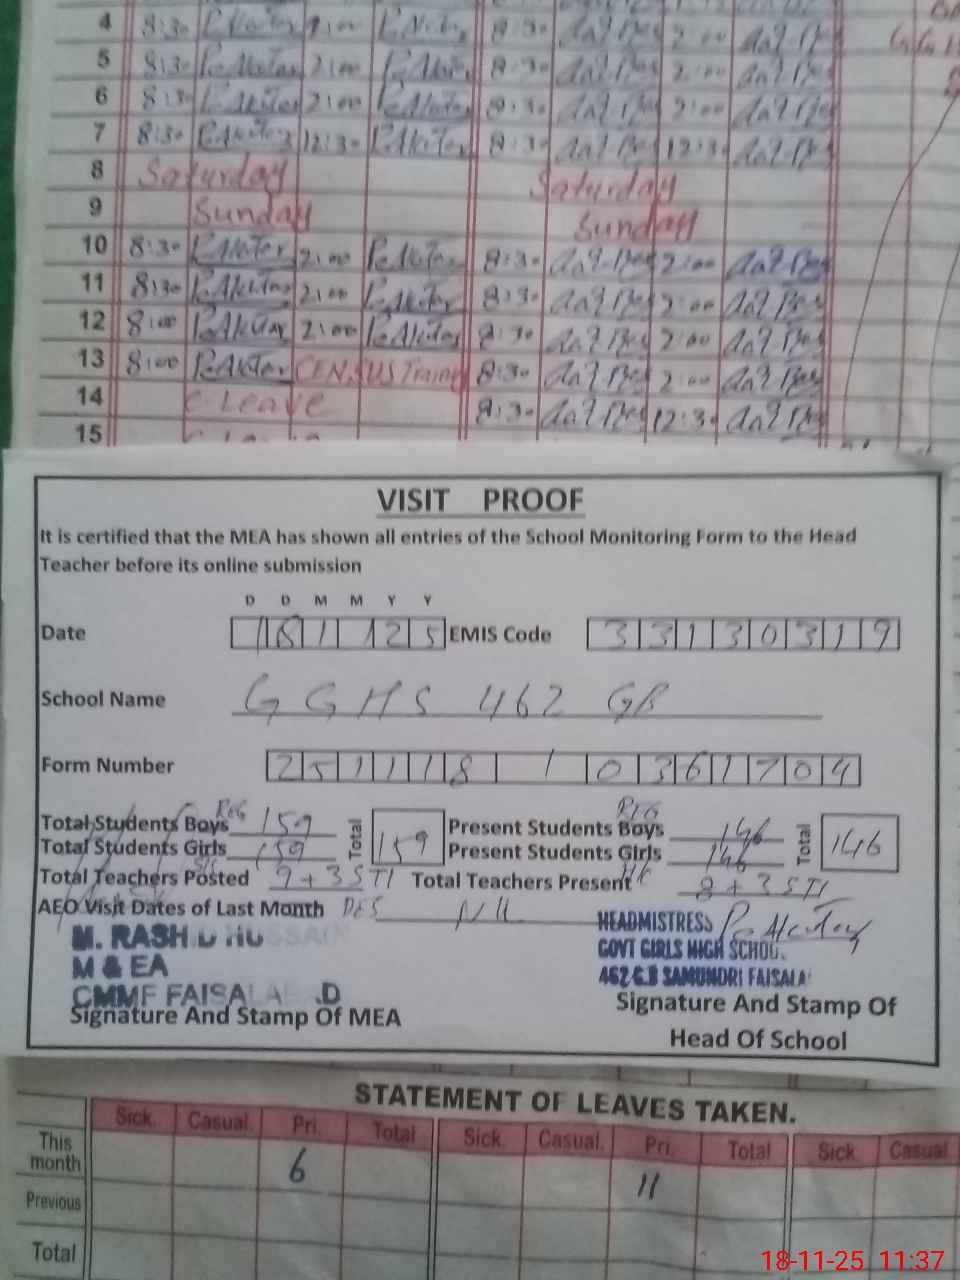 4 8:30 2:00 8:30 2:00
5 8:30 P.Akhtar 2:00 P.Akhtar 8:30 2:00
6 8:30 P.Akhtar 2:00 P.Akhtar 8:30 2:00
7 8:30 P.Akhtar 12:30 P.Akhtar 8:30 12:30
8 Saturday Saturday
9 Sunday Sunday
10 8:30 P.Akhtar 2:00 P.Akhtar 8:30 2:00
11 8:30 P.Akhtar 2:00 P.Akhtar 8:30 2:00
12 8:00 P.Akhtar 2:00 P.Akhtar 8:30 2:00
13 8:00 P.Akhtar CENSUS Training 8:30 2:00
14 C Leave 8:30 12:30
15
VISIT PROOF
It is certified that the MEA has shown all entries of the School Monitoring Form to the Head
Teacher before its online submission
D D M M Y Y
Date 18 11 25 EMIS Code 33130319
School Name GGHS 462 GB
Form Number 251118 1 0361704
Total Students Boys REG 159 Total 159 Present Students Boys REG 146 Total 146
Total Students Girls 159 Present Students Girls 146
Total Teachers Posted 9+3 STI Total Teachers Present 8+3 STI
AEO Visit Dates of Last Month Nil
M. RASHID HUSSAIN
M & EA
CMMF FAISALABAD
Signature And Stamp Of MEA
HEADMISTRESS P.Akhtar
GOVT GIRLS HIGH SCHOOL
462 G.B SAMUNDRI FAISALA
Signature And Stamp Of
Head Of School
STATEMENT OF LEAVES TAKEN.
Sick. Casual. Pri. Total Sick. Casual. Pri. Total Sick. Casual
This month 6 11
Previous
Total
18-11-25 11:37